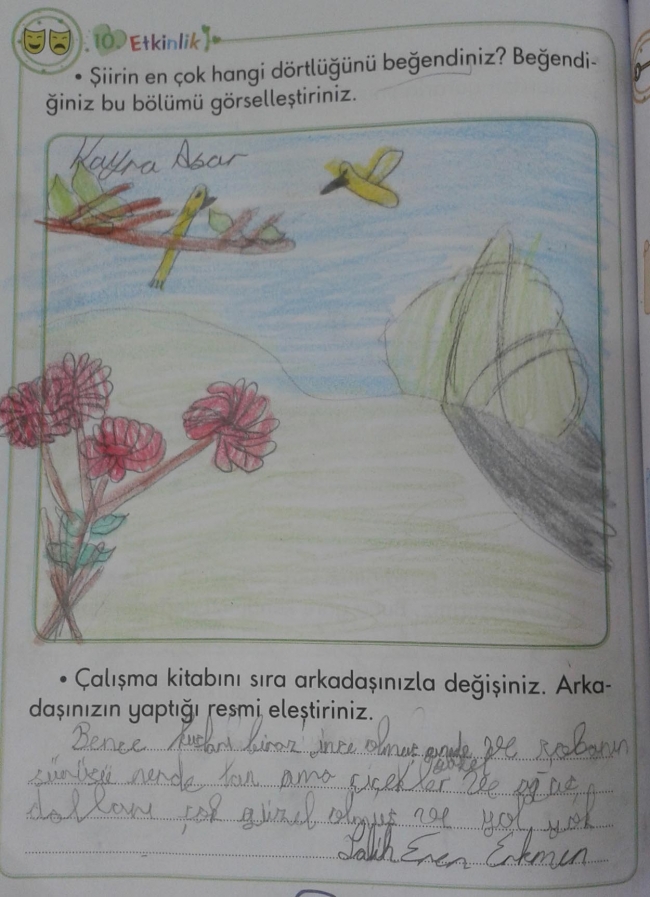 10. Etkinlik
• Şiirin en çok hangi dörtlüğünü beğendiniz? Beğendi-
ğiniz bu bölümü görselleştiriniz.
Kayra Asar
• Çalışma kitabını sıra arkadaşınızla değişiniz. Arka-
daşınızın yaptığı resmi eleştiriniz.
Bence kuşları biraz ince olmuş ve çobanın
sürüsü nerde ama çiçekler güzel ve ağaç
dalları çok güzel olmuş ve yol yok
Salih Eren Erkmen